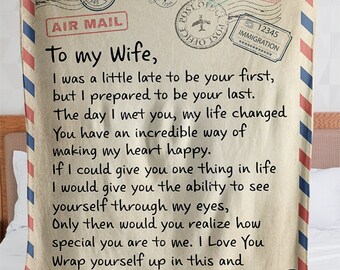 AIR MAIL
POST OFFICE
POST OFFICE
12345
IMMIGRATION
To my Wife,
I was a little late to be your first,
but I prepared to be your last.
The day I met you, my life changed
You have an incredible way of
making my heart happy.
If I could give you one thing in life
I would give you the ability to see
yourself through my eyes,
Only then would you realize how
special you are to me. I Love You
Wrap yourself up in this and